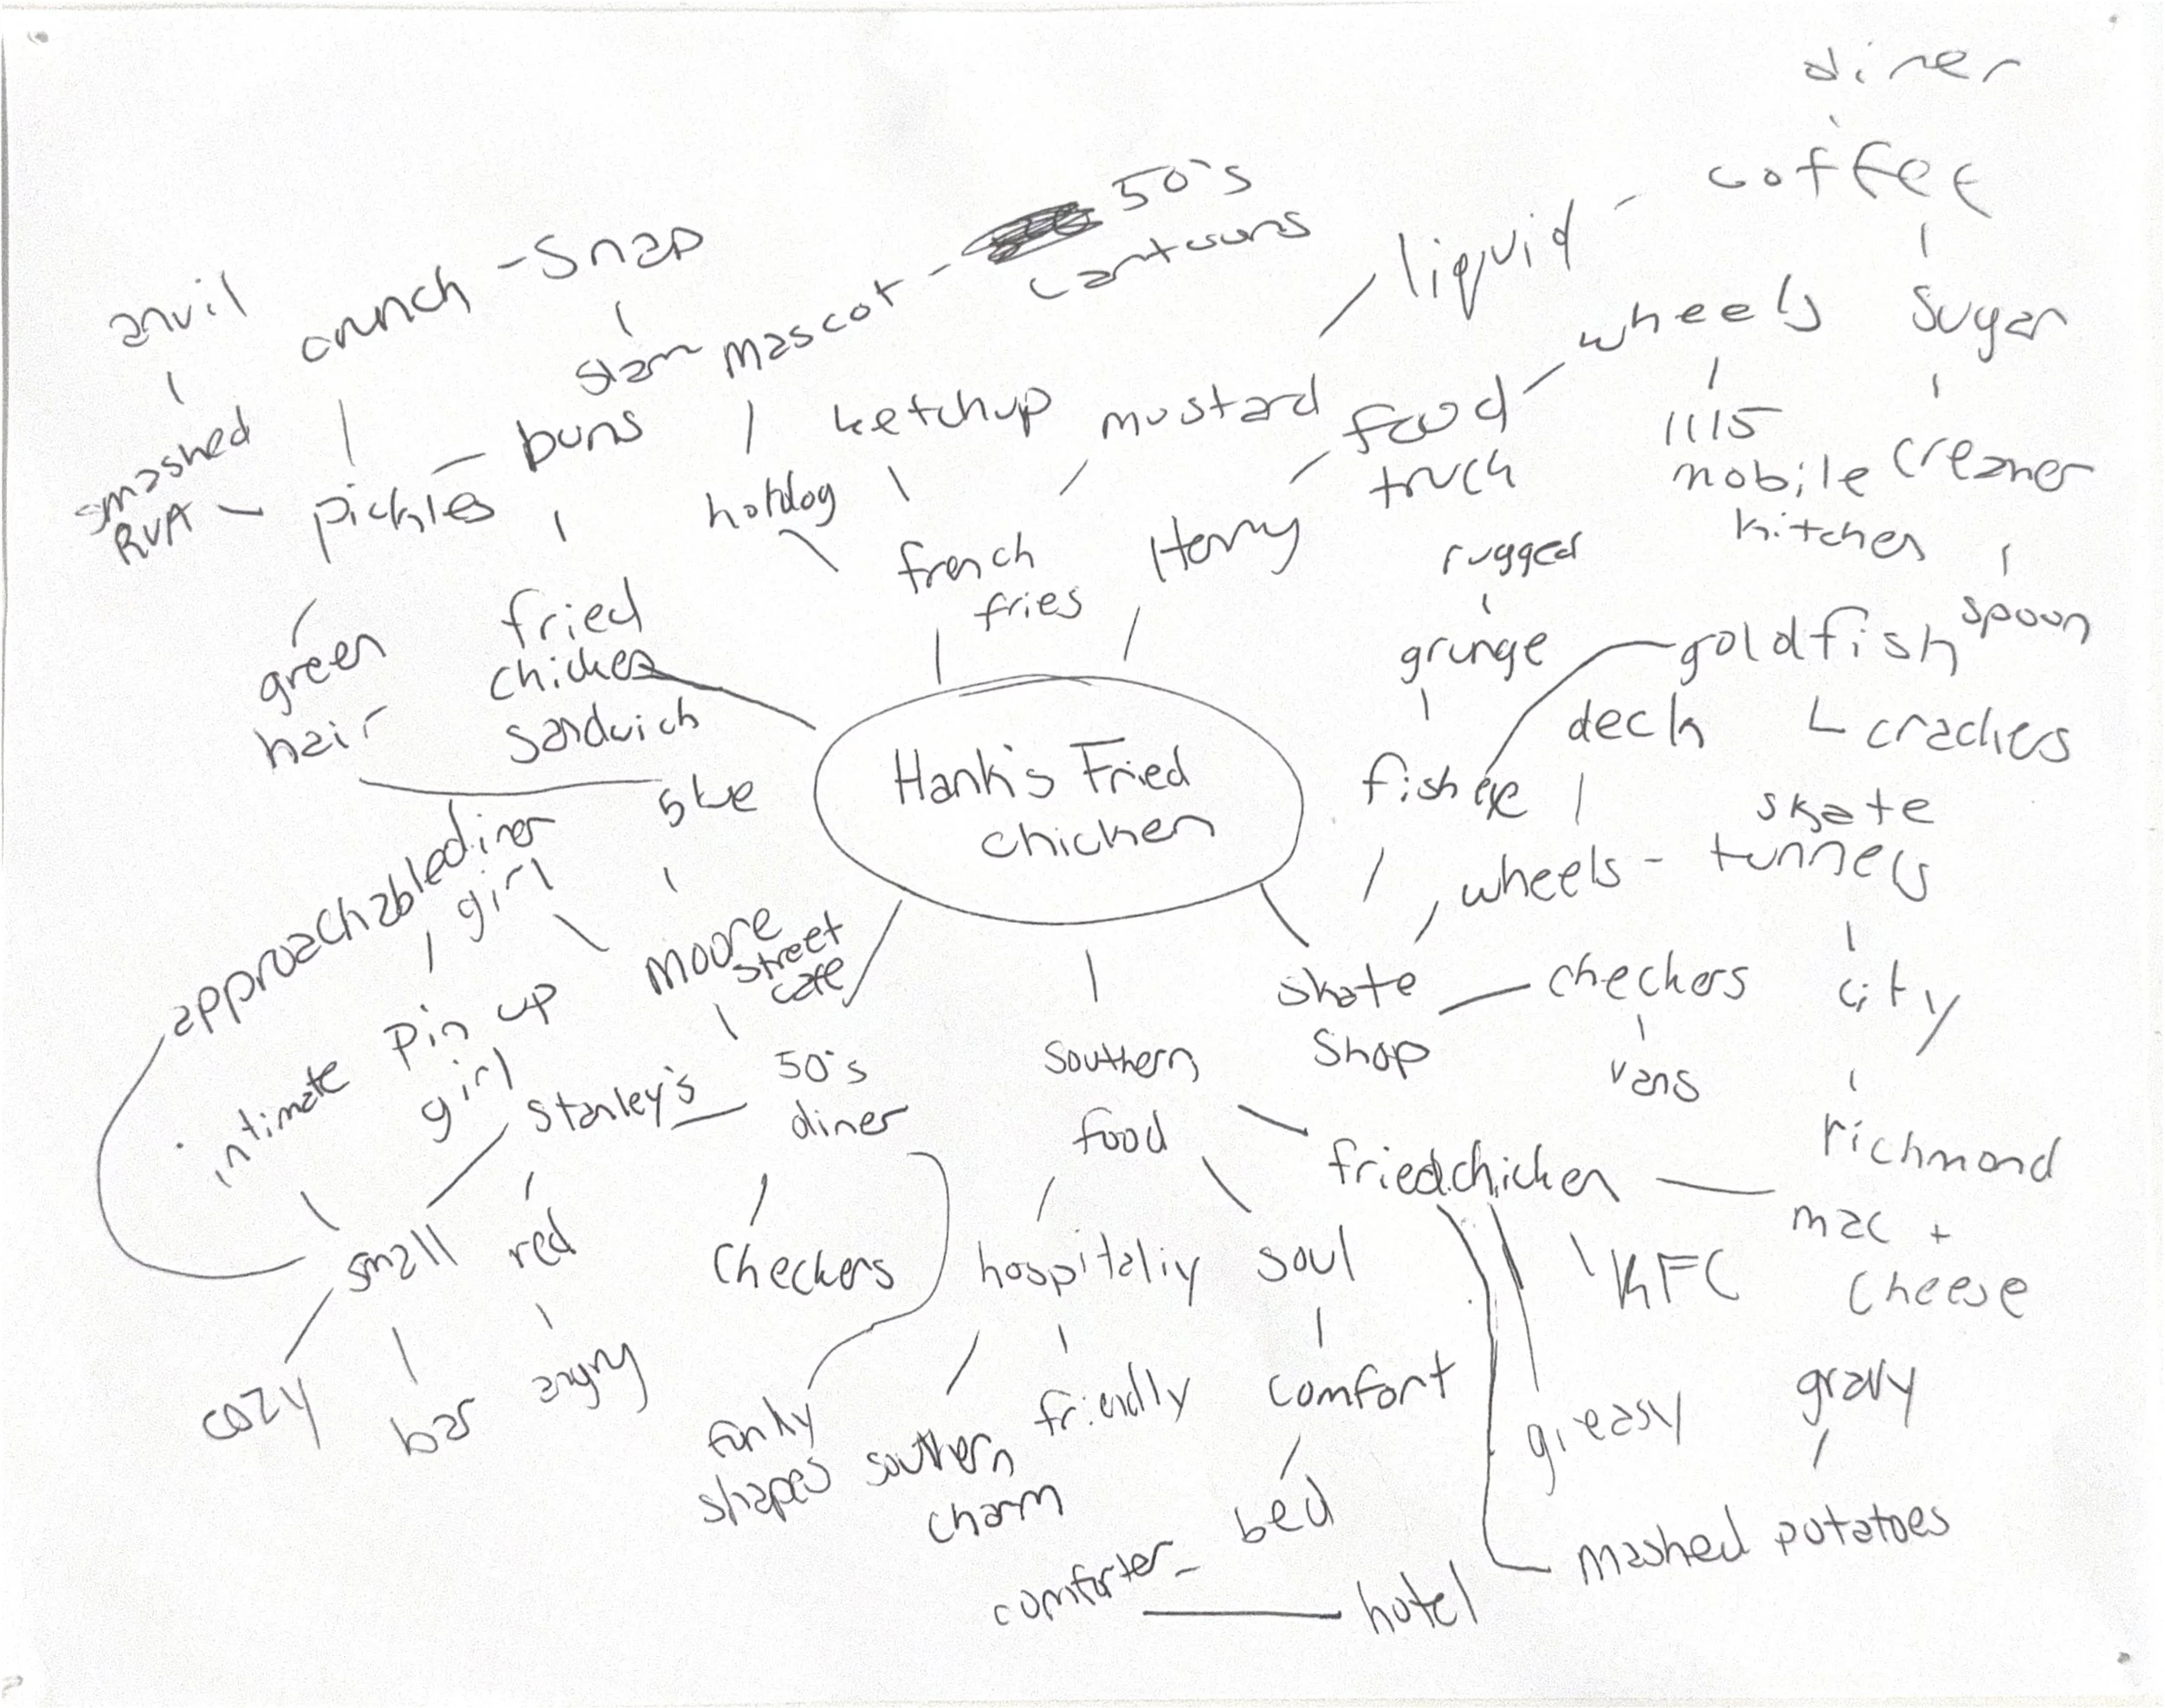 diner
coffee
50's
cartoons
liquid
crunch - Snap
anvil
slam
mascot
wheels
sugar
ketchup
mustard
food
truck
1115
mobile
kitchen
creamer
smashed
RVA
pickles
buns
hotdog
french
fries
Henry
rugged
spoon
green
hair
fried
chicken
sandwich
grunge
goldfish
deck
crackers
Hank's Fried
chicken
fish eye
skate
tunnels
wheels
approachable
diner
girl
Moore
street
cafe
skate
shop
checkers
city
vans
intimate
pin up
girl
Stanley's
50's
diner
Southern
food
fried chicken
richmond
mac +
cheese
small
red
Checkers
hospitaliy
soul
KFC
cozy
bar
angry
funky
shapes
southern
charm
friendly
comfort
greasy
gravy
bed
comforter
hotel
mashed potatoes